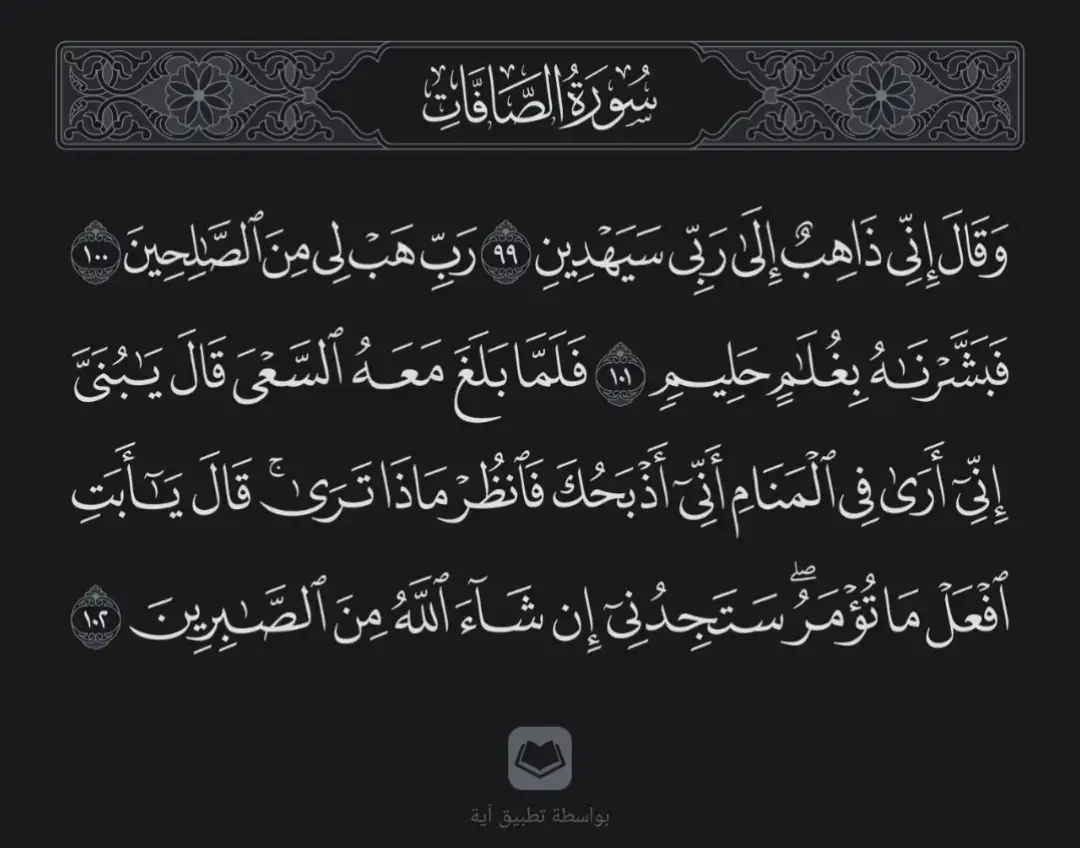 سُورَةُ الصَّافَّاتِ
وَقَالَ إِنِّي ذَاهِبٌ إِلَىٰ رَبِّي سَيَهْدِينِ ٩٩ رَبِّ هَبْ لِي مِنَ ٱلصَّـٰلِحِينَ ١٠٠
فَبَشَّرْنَـٰهُ بِغُلَـٰمٍ حَلِيمٍ ١٠١ فَلَمَّا بَلَغَ مَعَهُ ٱلسَّعْىَ قَالَ يَـٰبُنَىَّ
إِنِّىٓ أَرَىٰ فِى ٱلْمَنَامِ أَنِّىٓ أَذْبَحُكَ فَٱنظُرْ مَاذَا تَرَىٰ ۚ قَالَ يَـٰٓأَبَتِ
ٱفْعَلْ مَا تُؤْمَرُ ۖ سَتَجِدُنِىٓ إِن شَآءَ ٱللَّهُ مِنَ ٱلصَّـٰبِرِينَ ١٠٢
بواسطة تطبيق آية